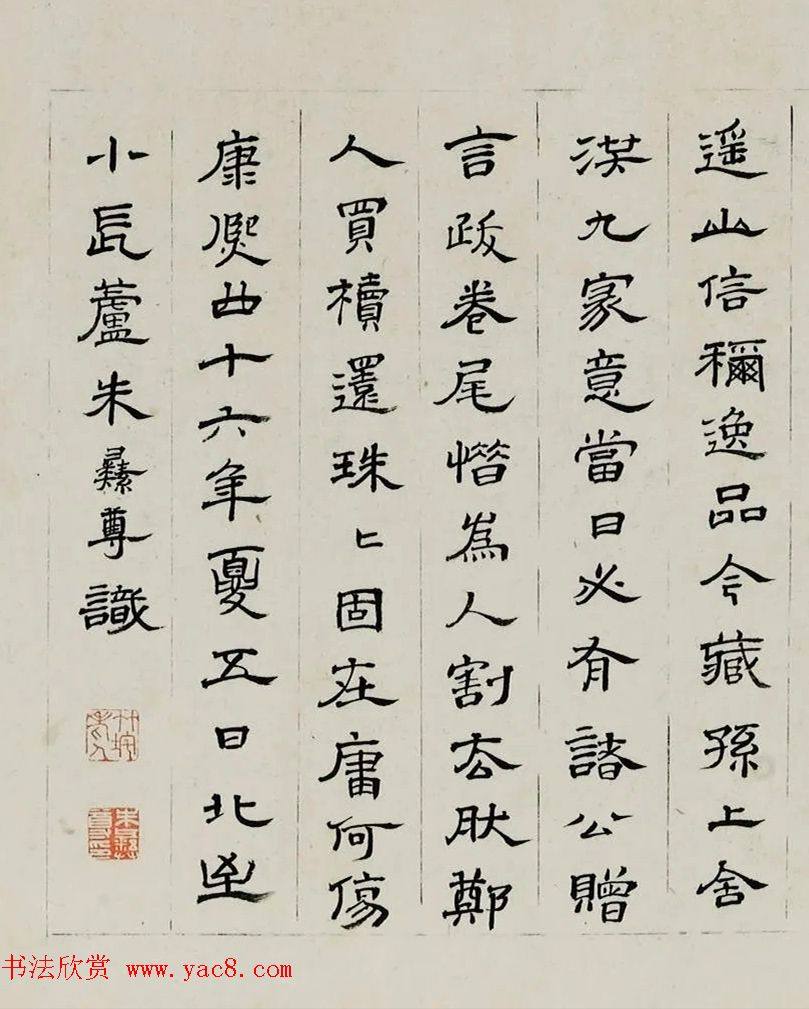 遥山信稱逸品今藏孫上舍
渶九家意當日必有諸公贈
言跋卷尾惜為人割去肰鄭
人買櫝還珠匕固在庸何傷
康熙四十六年夏五日北至
小長蘆朱彝尊識
竹垞老人
朱彝尊印
书法欣赏 www.yac8.com